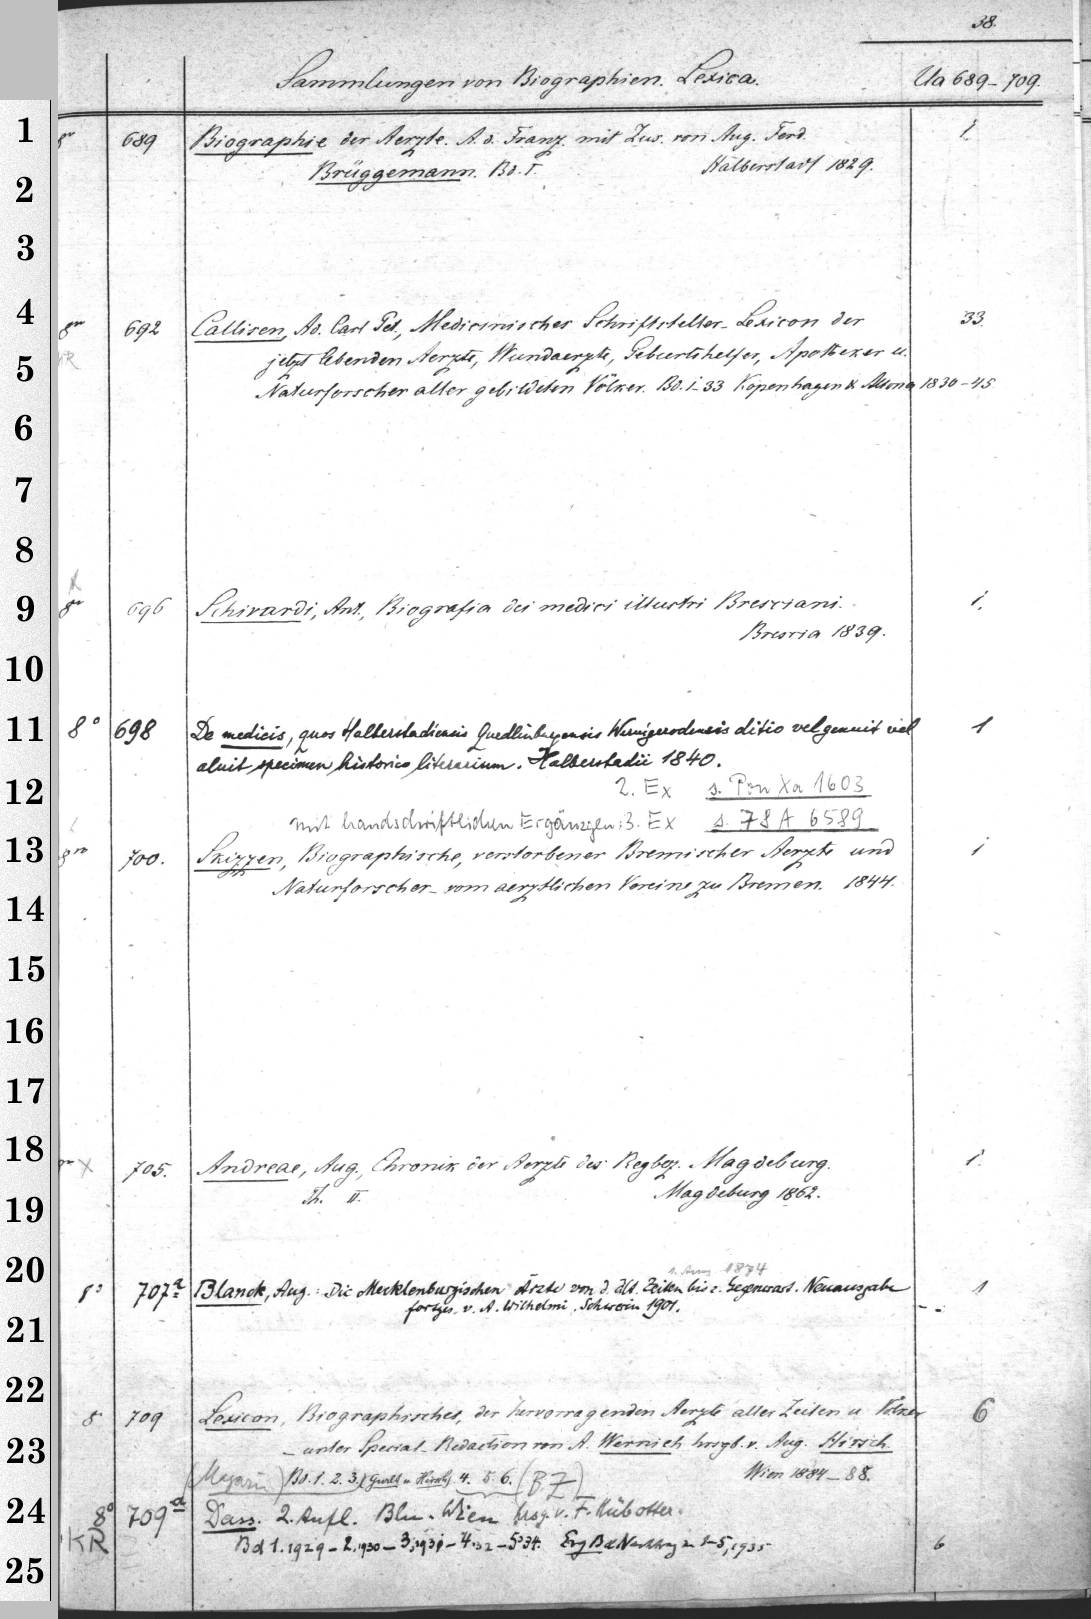 38.
Sammlungen von Biographien. Lexica. Ua 689-709.
1 8° 689 Biographie der Aerzte. A. d. Franz. mit Zus. von Aug. Ferd. 1.
2 Brüggemann. Bd. I. Halberstadt 1829.
3
4 8° 692 Callisen, Ad. Carl Pet., Medicinisches Schriftsteller-Lexicon der 33.
5 jetzt lebenden Aerzte, Wundaerzte, Geburtshelfer, Apotheker u.
Naturforscher aller gebildeten Völker. Bd. 1-33 Kopenhagen & Altona 1830-45
6
7
8
9 8° 696 Schivardi, Ant., Biografia dei medici illustri Bresciani. 1.
Brescia 1839.
10
11 8° 698 De medicis, quos Halberstadiensis Quedlinburgensis Wernigerodensis ditio vel genuit vel 1
aluit, specimen historico literarium. Halberstadii 1840.
12 2. Ex s. Xa 1603
mit handschriftlichen Ergänzgen: 3. Ex s. 78 A 6589
13 8° 700. Skizzen, Biographische, verstorbener Bremischer Aerzte und 1
Naturforscher vom aerztlichen Vereine zu Bremen. 1844.
14
15
16
17
18 X 705. Andreae, Aug., Chronik der Aerzte des Regbez. Magdeburg. 1.
19 Th. II. Magdeburg 1862.
20 1874
8° 707a Blanck, Aug.: Die Mecklenburgischen Ärzte von d. ält. Zeiten bis z. Gegenwart. Neuausgabe 1
fortges. v. A. Wilhelmi, Schwerin 1901.
21
22
8 709 Lexicon, Biographisches, der hervorragenden Aerzte aller Zeiten u. Völker 6
23 – unter Special-Redaction von A. Wernich hrsgb. v. Aug. Hirsch.
(Magazin) Bd. 1. 2. 3. (Gurlt u. Hirsch) 4. 5. 6. Wien 1884-88.
24 8° 709a Dass. 2. Aufl. Bln.-Wien hrsg. v. F. Hübotter.
KR Bd 1. 1929 - 2, 1930 - 3, 1931 - 4. 32 - 5 34. Erg Bd 1-5, 1935 6
25